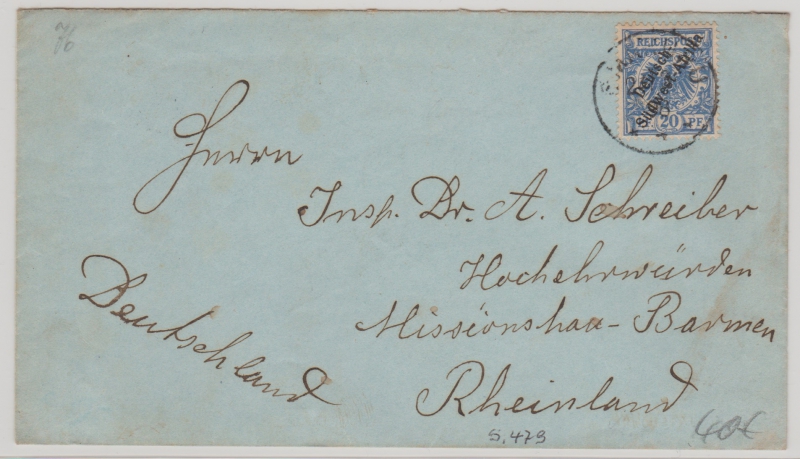 REICHSPOST
Deutsch-
Südwest-Afrika
20 PF
Herrn
Insp. Dr. A. Schreiber
Hochehrwürden
Missionshau- Barmen
Rheinland
Deutschland
S. 479
40€